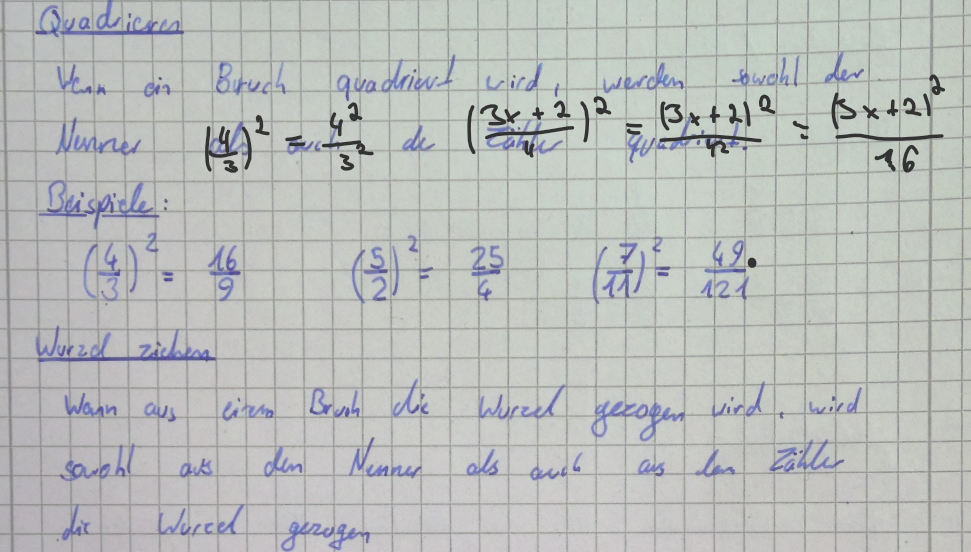 Quadrieren
Wenn ein Bruch quadriert wird, werden sowohl der
Nenner als auch der Zähler quadriert.
(4/3)² = 4²/3² ((3x + 2)/4)² = (3x + 2)²/4² = (3x + 2)²/16
Beispiele:
(4/3)² = 16/9 (5/2)² = 25/4 (7/11)² = 49/121
Wurzel ziehen
Wenn aus einem Bruch die Wurzel gezogen wird, wird
sowohl aus dem Nenner als auch aus dem Zähler
die Wurzel gezogen